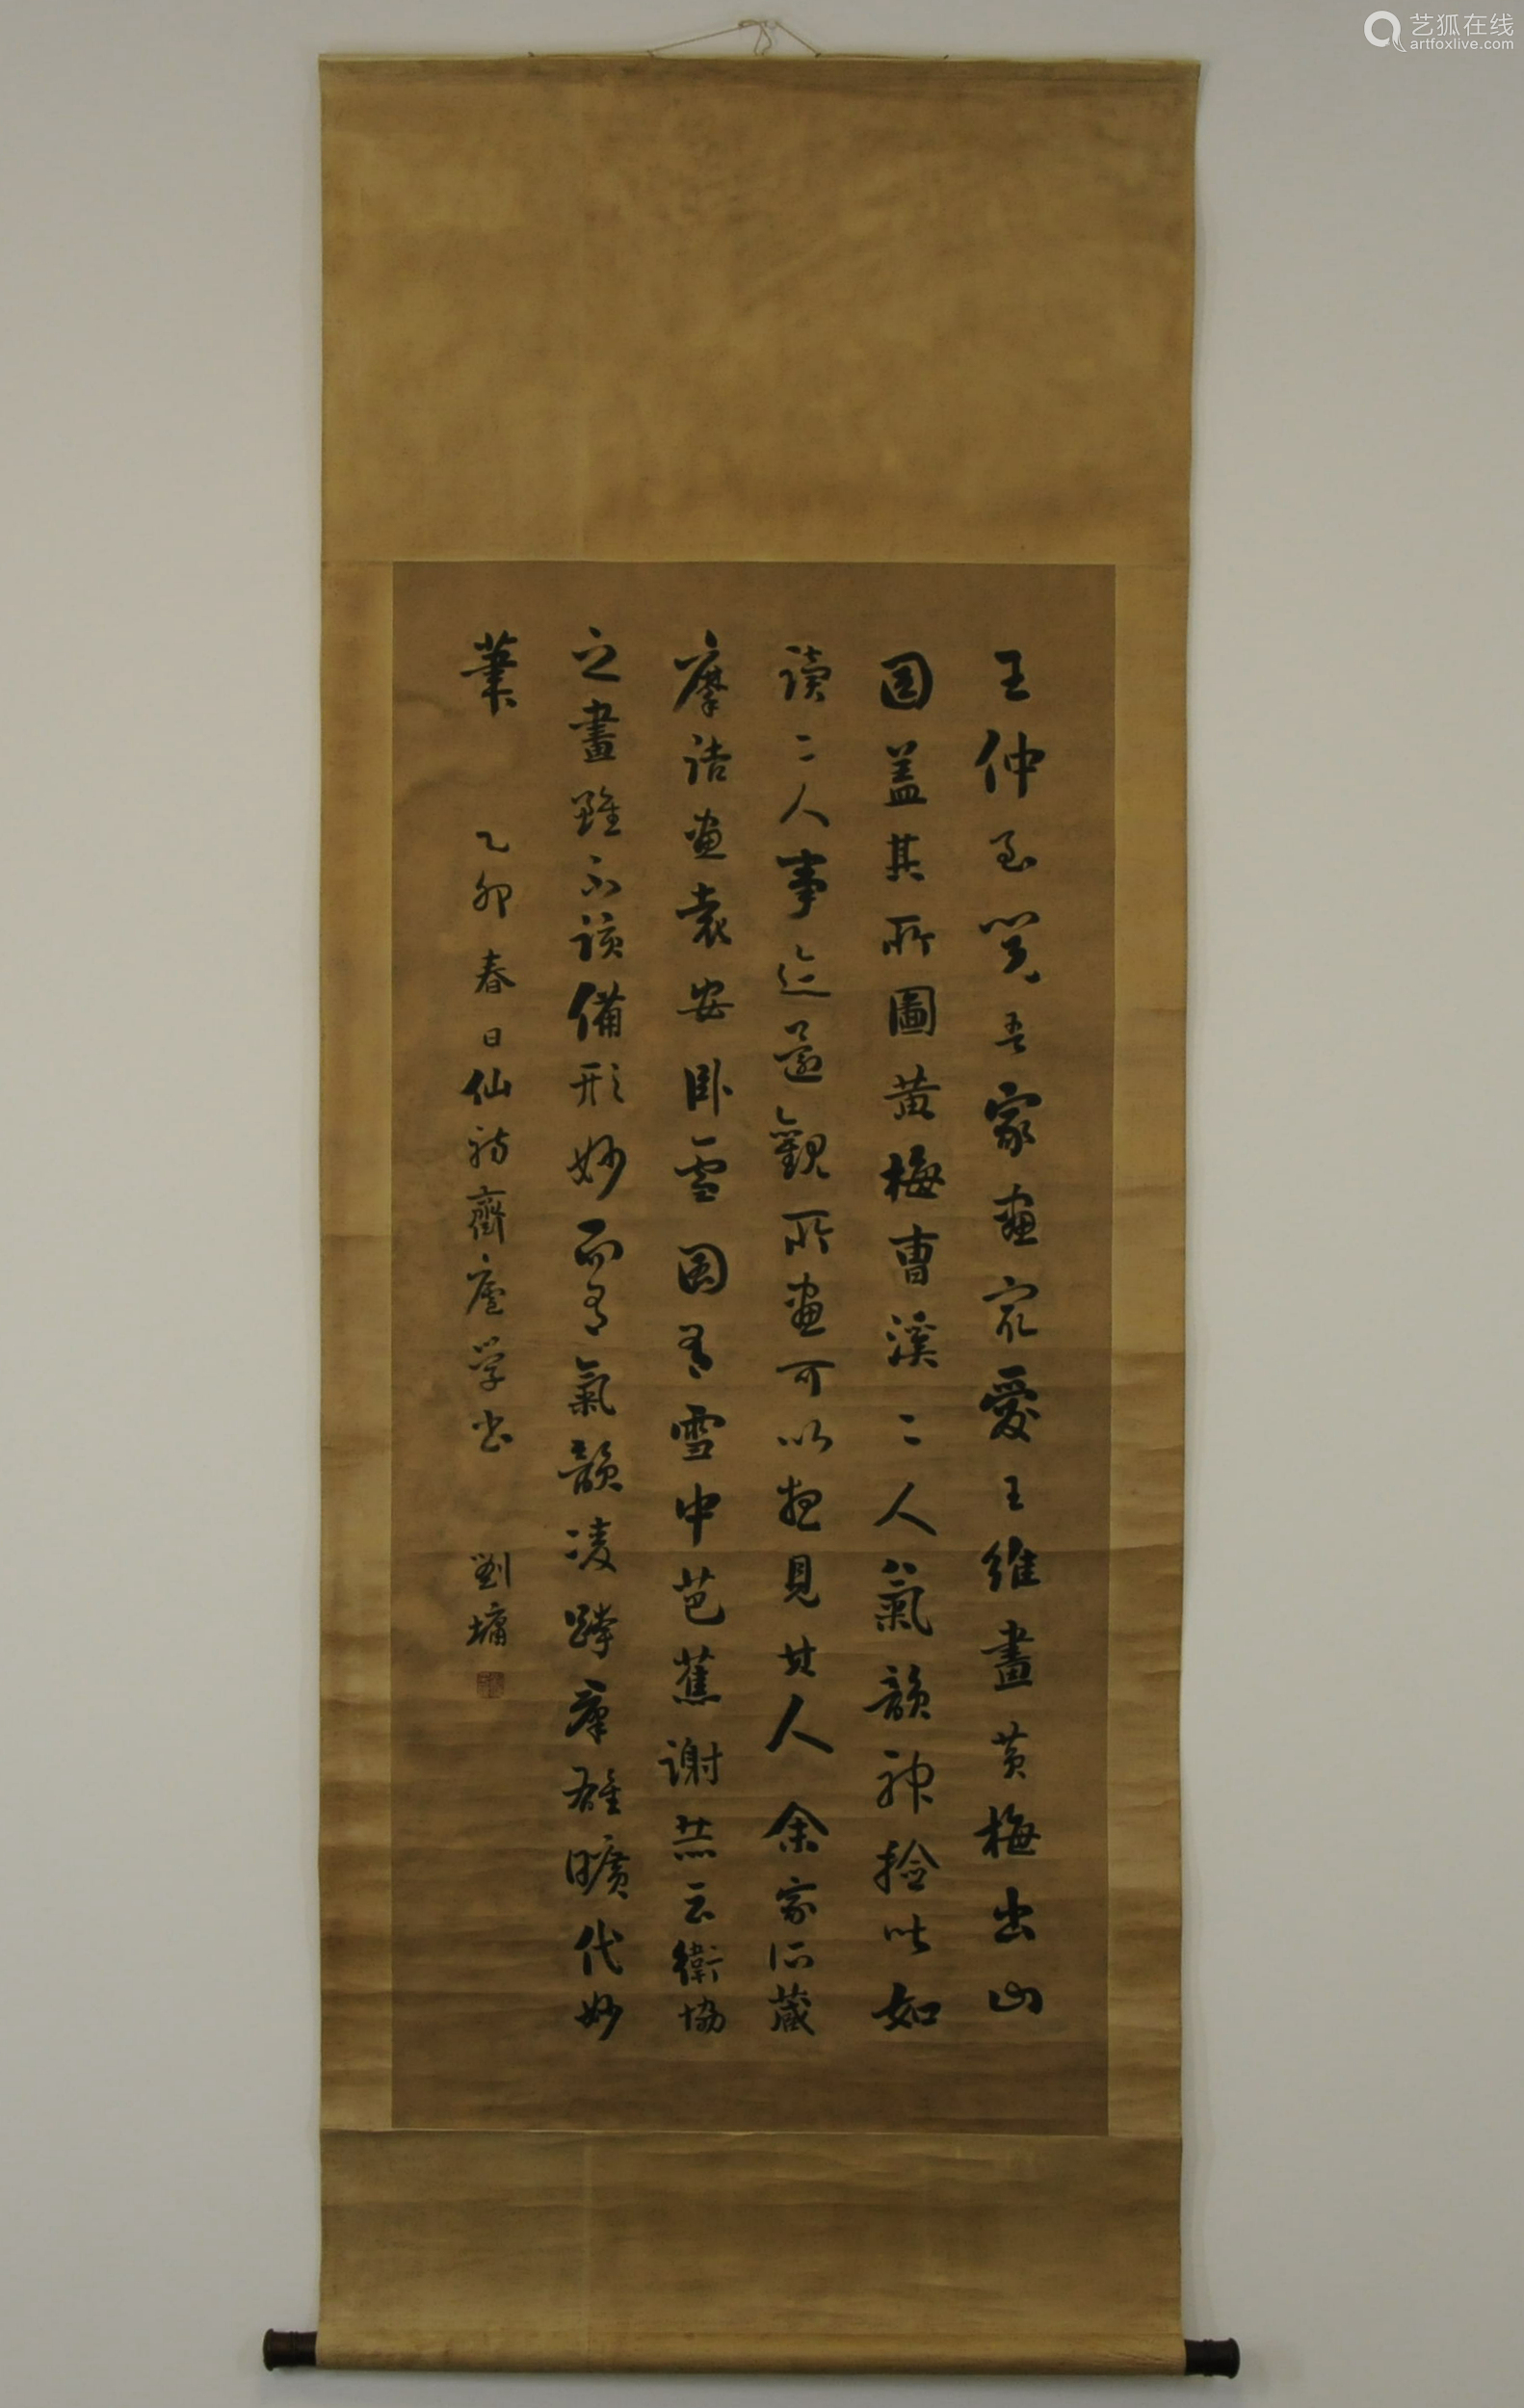 王仲至閱吾家畫最愛王維畫黃梅出山
圖蓋其所圖黃梅曹溪二人氣韻神撿皆如
讀二人事迹還觀所畫可以想見其人余家所藏
摩詰畫袁安臥雪圖有雪中芭蕉謝赫云衛協
之畫雖不該備形妙而有氣韻凌跨群雄曠代妙
筆
乙卯春日仙舫齋廬學書
劉墉
艺狐在线
artfoxlive.com